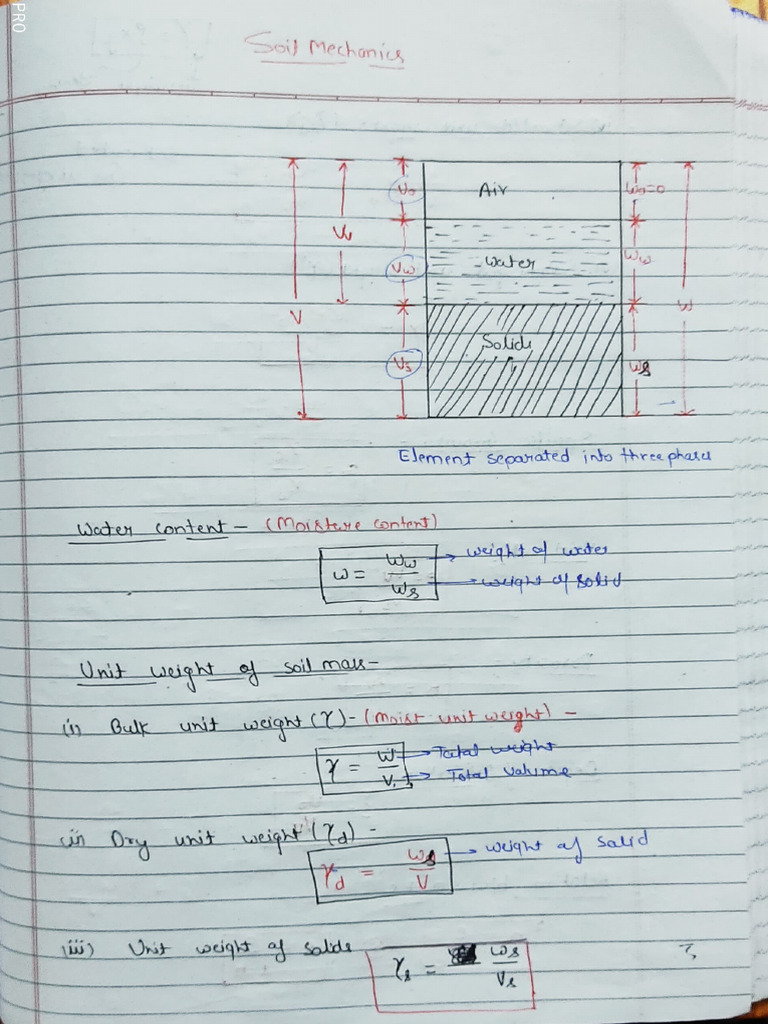 PRO
Soil Mechanics
Va Air Wa=0
Vv
Vw water Ww
V W
Vs Solids Ws
Element separated into three phases
Water content - (Moisture content)
w = Ww/Ws → weight of water → weight of solid
Unit weight of soil mass -
(i) Bulk unit weight (γ) - (Moist unit weight) -
γ = W/V → Total weight → Total volume
(ii) Dry unit weight (γd) -
γd = Ws/V → weight of solid
(iii) Unit weight of solids γs = Ws/Vs